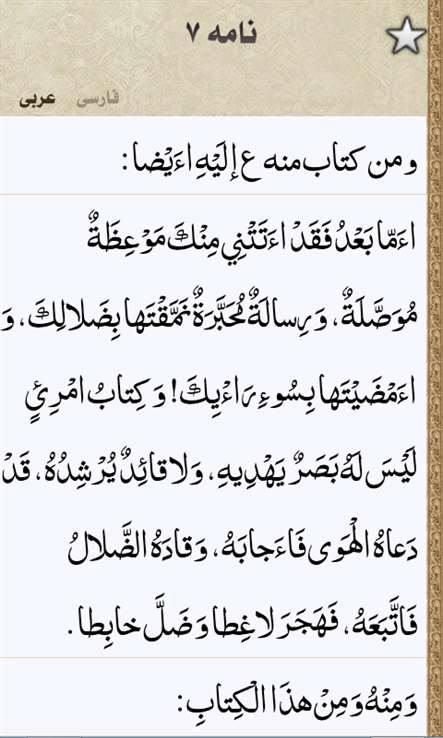 نامه ۷
فارسی عربی
و من كتاب منه ع إلَيْهِ اءَيْضا :
اءَمّا بَعْدُ فَقَدْ اءَتَتْنِي مِنْكَ مَوْعِظَةٌ
مُوَصَّلَةٌ، وَ رِسالَةٌ مُحَبَّرَةٌ نَمَّقْتَها بِضَلالِكَ، وَ
اءَمْضَيْتَها بِسُوءِ رَاءْيِكَ! وَ كِتابُ امْرِئٍ
لَيْسَ لَهُ بَصَرٌ يَهْدِيهِ، وَ لا قائِدٌ يُرْشِدُهُ، قَدْ
دَعاهُ الْهَوى فَاءَجابَهُ، وَ قادَهُ الضَّلالُ
فَاتَّبَعَهُ، فَهَجَرَ لاغِطا وَ ضَلَّ خابِطا .
وَ مِنْهُ وَ مِنْ هذَا الْكِتابِ: